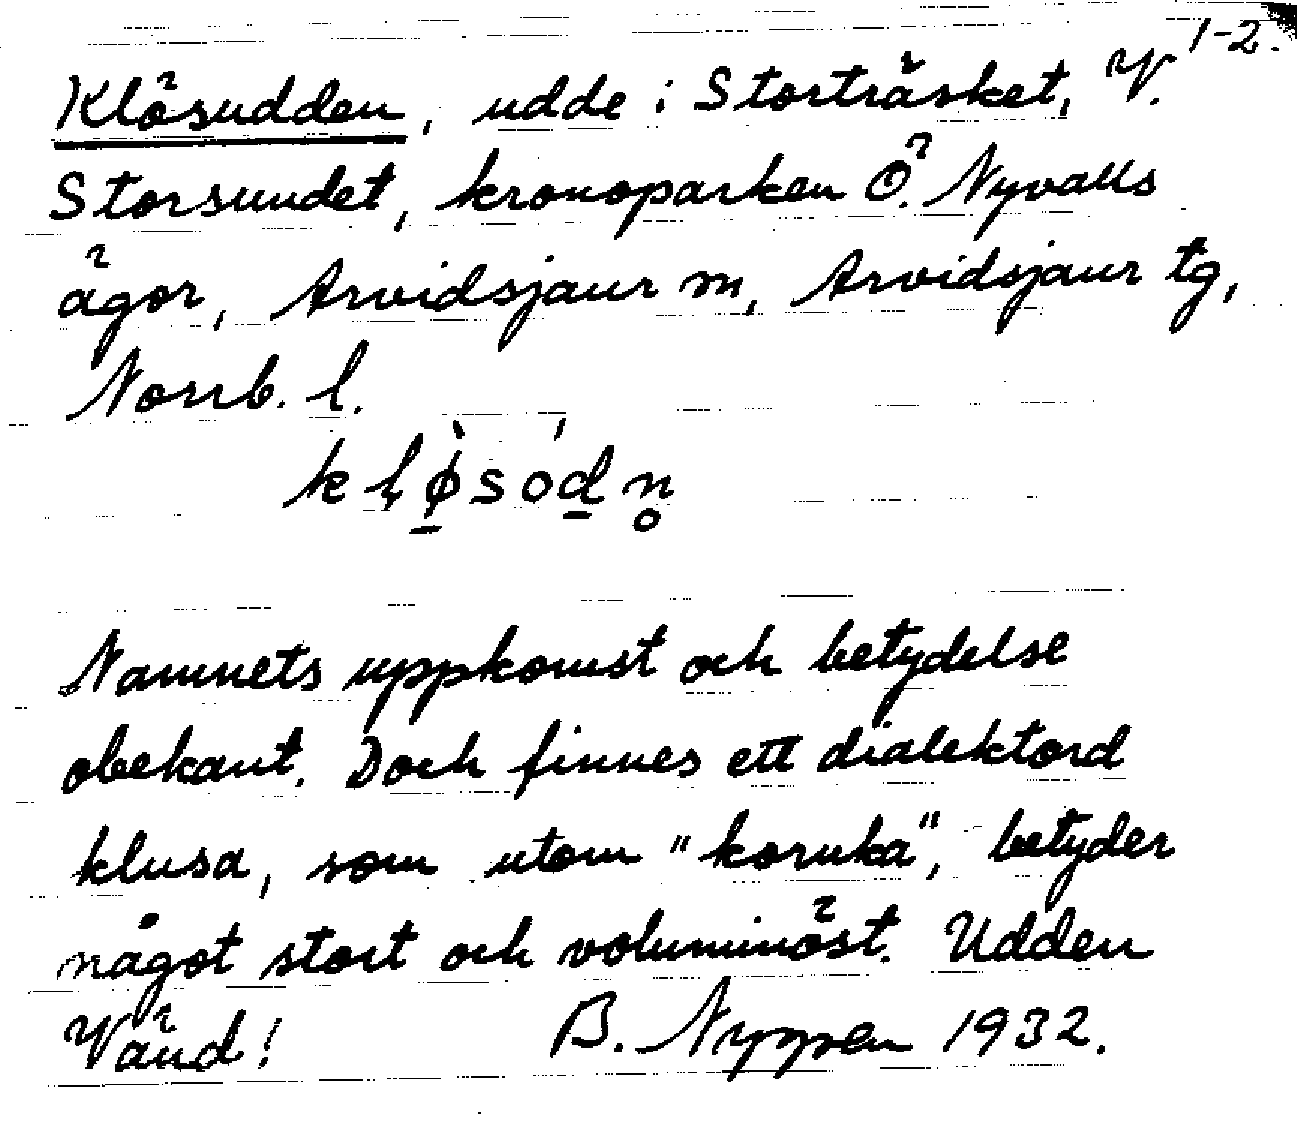 1-2.
Klösudden, udde i Storträsket, V.
Storsundet, kronoparken Ö. Nyvalls
ägor, Arvidsjaur sn, Arvidsjaur tg,
Norrb. l.
Namnets uppkomst och betydelse
obekant. Dock finnes ett dialektord
klusa, som utom "koruka", betyder
något stort och voluminöst. Udden
Vänd! B. Nyppen 1932.